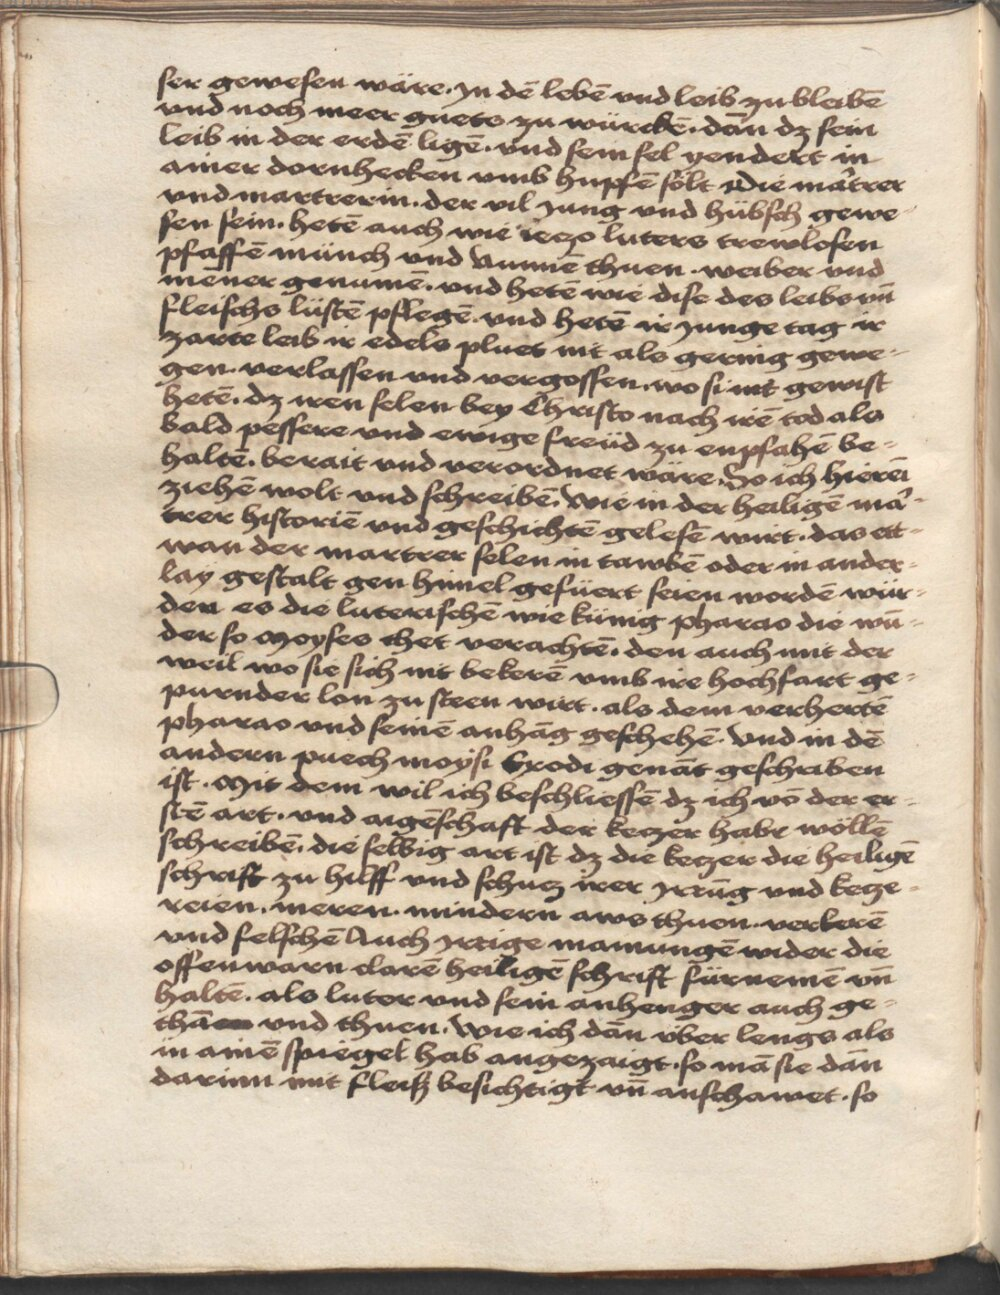 ser gewesen wäre. jn dē lebē vnd leib zu bleibē
vnd noch meer guets zu würckē. dan̄ dz sein
leib in der erdē ligē. vnd sein sel yendert in
ainer dornhecken vmb hupfē sölt Die mar̄trer
vnd martrerin. der vil jung vnd hübsch gewe-
sen sein. hetē auch wie ieczo luters trewlosen
pfaffē münch vnd Nunnē thuen. weiber vnd
mēner genumē. vnd hetē wie dise des leibs vn̄
fleischs lüstē pflegē. vnd hetē ir junge tag ir
zarte leib ir edels pluet nit als gering gewe-
gen. verlassen vnd vergossen. wo si nit gewist
hetē. dz iren selen bey Christo nach irē tod als
bald pessere vnd ewige freüd zu enpfahē be-
haltē. berait vnd verordnet wäre. So ich hierei
ziehē wolt vnd schreibē. wie in der heiligē mar̄-
trer historiē vnd geschichtē gelesē wirt. das ett-
wan der martrer selen in tawbē oder in ander-
lay gestalt gen himel gefüert seien wordē wür-
den es die luterischē wie künig pharao die wū-
der so Moyses thet verachtē. den auch mit der
weil wo sie sich nit bekerē vmb ire hochfart ge-
purnder lon zu steen wirt. als dem verhertē
pharao vnd seinē anhāg geschehē. vnd in dē
andern puech moysi Exodi genāt geschriben
ist. Mit dem wil ich beschliessē dz ich vō der er-
stē art. vnd aigēschaft der keczer habe wöllē
schreibē. die selbig art ist dz die keczer die heiligē
schrift zu hilff vnd schucz irer jrrūg vnd kecze-
reien. meren. mindern aws thuen. verkerē
vnd felschē Auch jrrige mainungē wider die
offenwarn clarē heiligē schrift fürnemē vn̄
haltē. als luter vnd sein anhenger auch ge-
thā vnd thuen. wie ich dān über lengs als
in ainē spiegel hab angezaigt. so mā sie dān
darinn mit fleiß besichtigt vn̄ anschawet. so